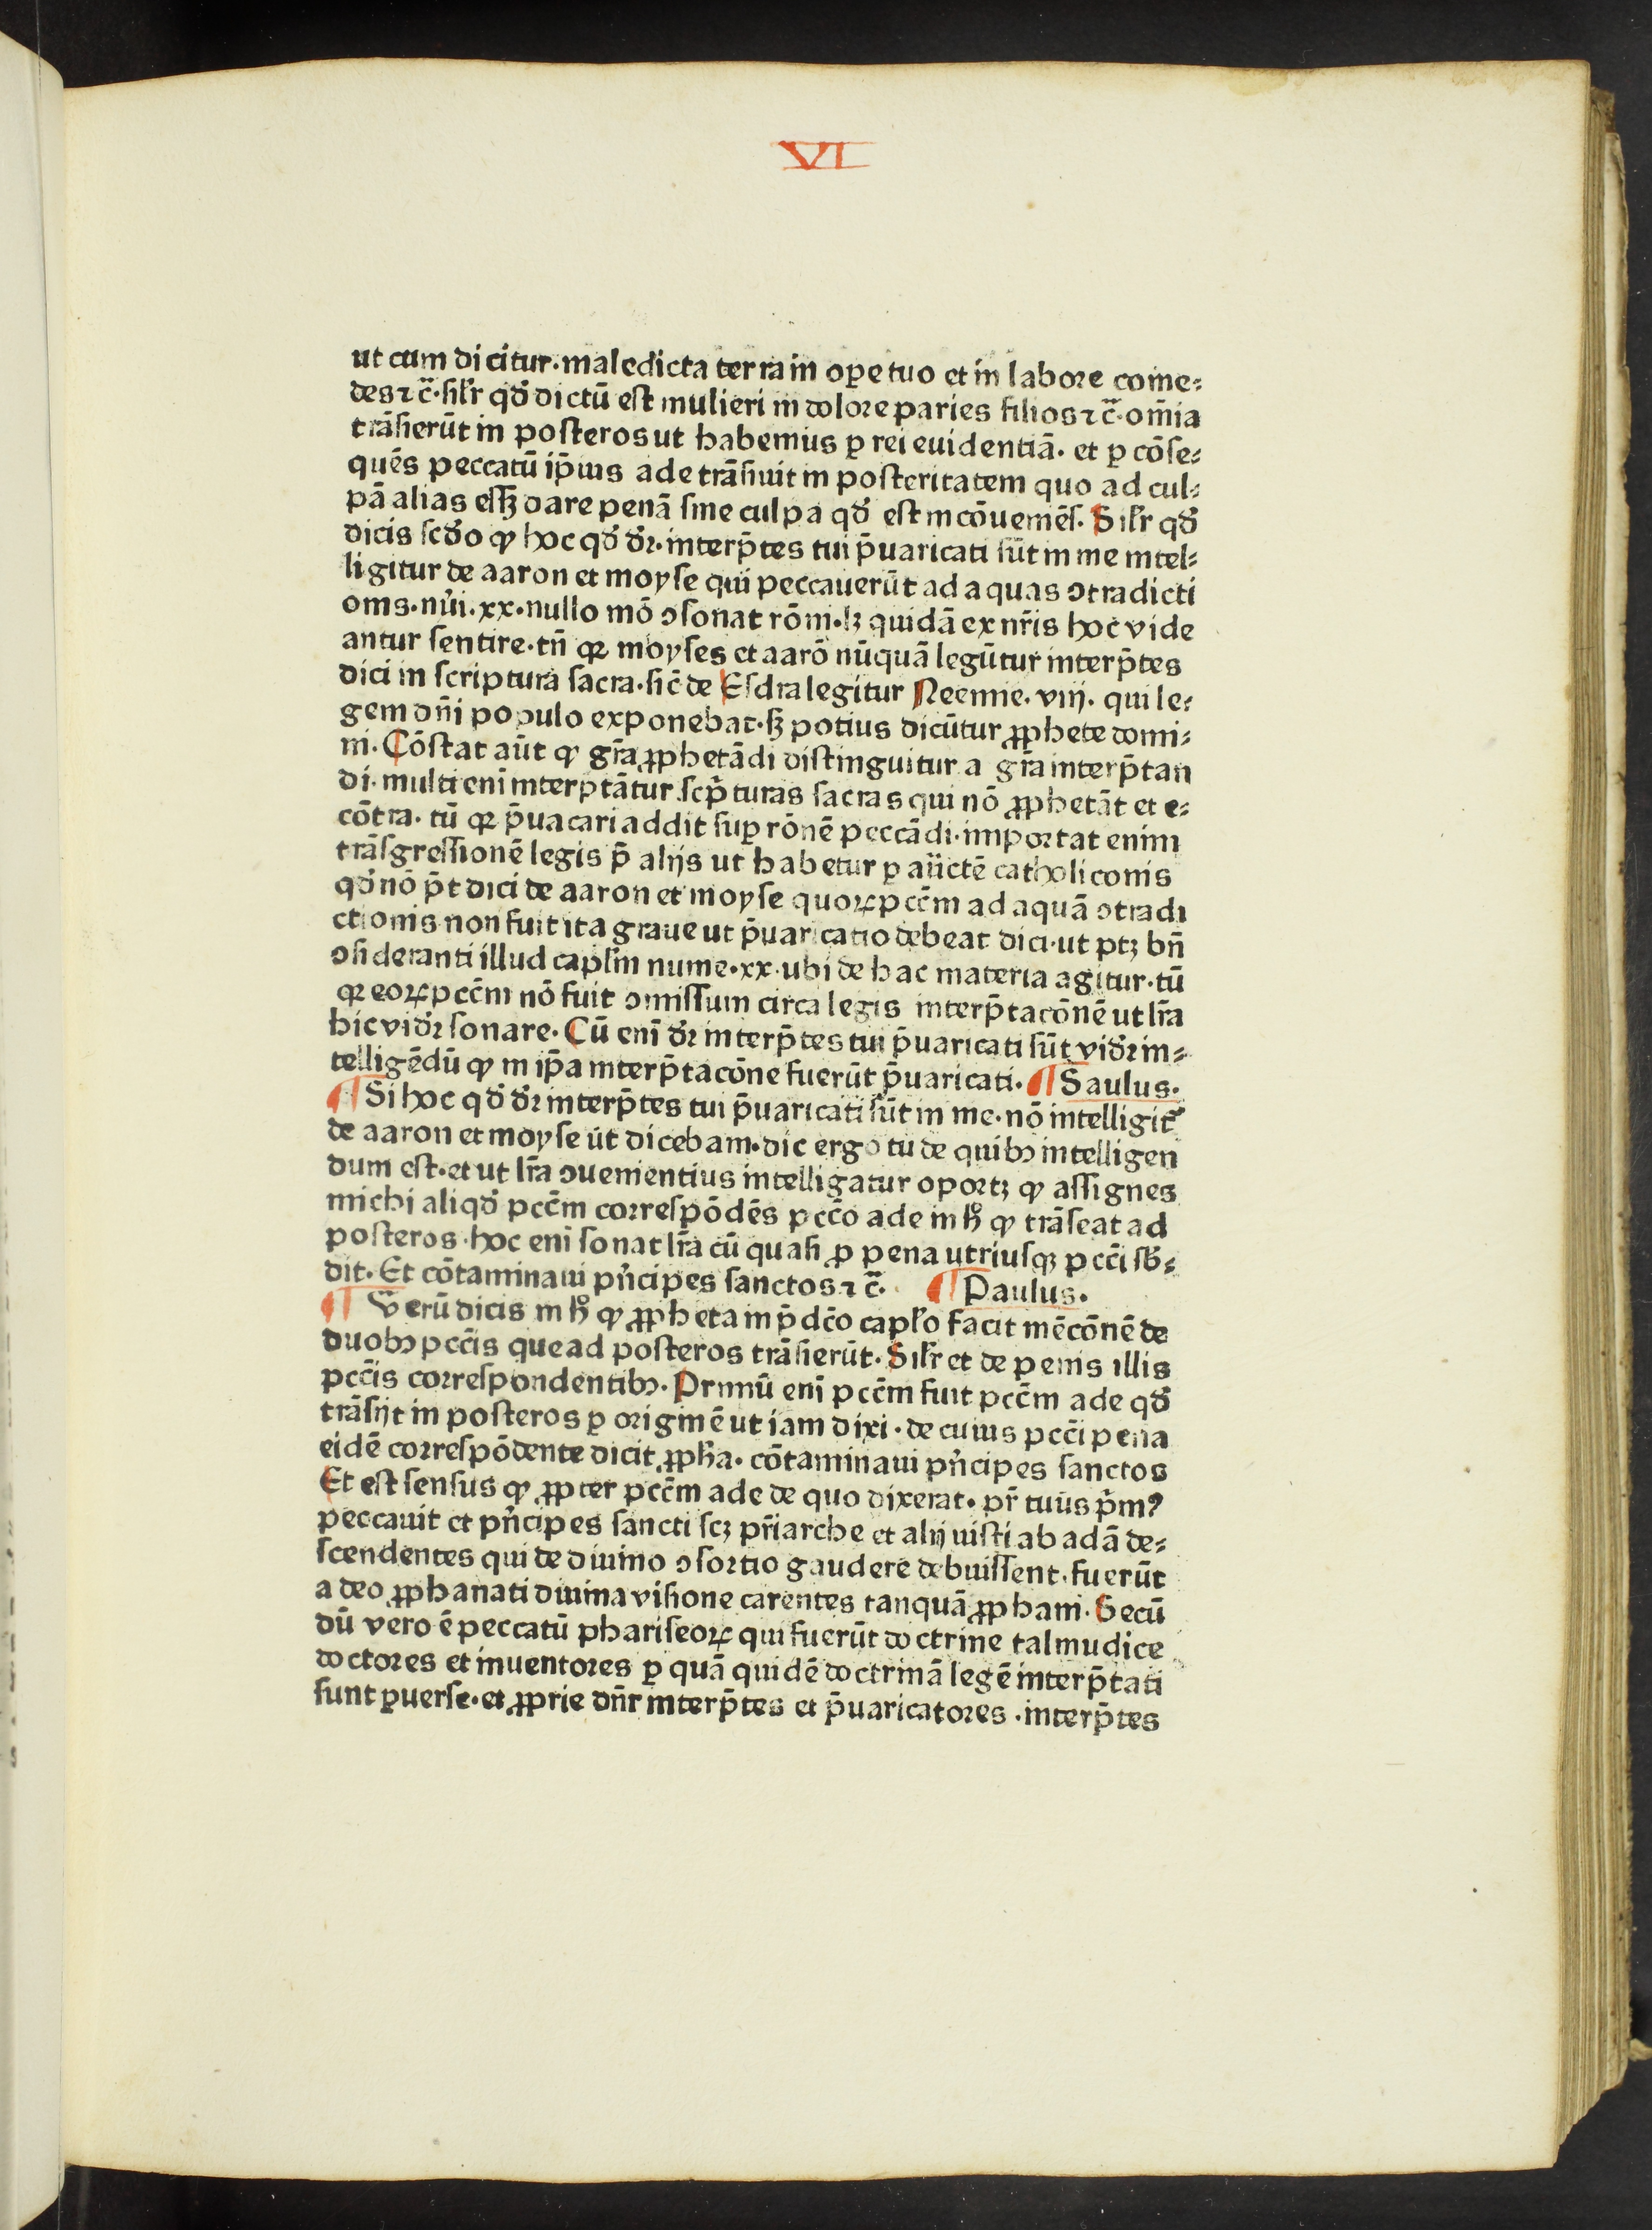 VI
ut cum dicitur·maledicta terra in oꝑe tuo et in labore come⸗
des ⁊ c̄·sil̓r qd̓ dictū est mulieri in dolore paries filios ⁊ c̄·om̄ia
trāsierūt in posteros ut habemus ꝑ rei euidentiā· et ꝑ cōse⸗
quēs peccatū ip̄ius ade trāsiuit in posteritatem quo ad cul⸗
pā alias eſſꝫ dare penā sine culpa qd̓ est incōueniēs· Sil̓r qd̓
dicis scd̓o ꝙ hoc qd̓ dr̄·interp̄tes tui p̄uaricati sūt in me intel⸗
ligitur de aaron et moyse qui peccauerūt ad aquas ↄtradicti
onis·nūi·xx·nullo mō ↄsonat rōni·lꝫ quidā ex nr̄is hoc vide
antur sentire·tn̄ qꝛ moyses et aarō nūquā legūtur interp̄tes
dici in scriptura sacra·sic̄ de Esdra legitur Neemie·viij· qui le⸗
gem dn̄i populo exponebat·sꝫ potius dicūtur ꝓphete domi⸗
ni· Cōstat aūt ꝙ gr̄a ꝓphetādi distinguitur a gr̄a interp̄tan
di·multi enī interptātur scp̄turas sacras qui nō ꝓphetāt et e⸗
cōtra· tū qꝛ p̄uacari addit suꝑ rōnē peccādi·importat enim
trāsgressionē legis p̄ alijs ut habetur ꝑ aūctē catholiconis
qd̓ nō p̄t dici de aaron et moyse quoꝝ pcc̄m ad aquā ↄtradi
ctionis non fuit ita graue ut p̄uaricatio debeat dici·ut ptꝫ bn̄
ↄsideranti illud capl̄m nume·xx·ubi de hac materia agitur·tū
qꝛ eoꝝ pcc̄m nō fuit ↄmissum circa legis interp̄tacōnē ut lr̄a
hic vidr̄ sonare· Cū enī dr̄ interp̄tes tui p̄uaricati sūt vidr̄ in⸗
telligēdū ꝙ in ip̄a interp̄tacōne fuerūt p̄uaricati· ¶ Saulus·
¶ Si hoc qd̓ dr̄ interp̄tes tui p̄uaricati sūt in me·nō intelligit᷑
de aaron et moyse ut dicebam·dic ergo tu de quibꝰ intelligen
dum est·et ut lr̄a ↄuenientius intelligatur oportꝫ ꝙ assignes
michi aliqd̓ pcc̄m correspōdēs pcc̄o ade in hͦ ꝙ trāseat ad
posteros·hoc eni sonat lr̄a cū quasi ꝓ pena utriusqꝫ pcc̄i sb̓⸗
dit· Et cōtaminaui pn̓cipes sanctos ⁊ c̄· ¶ Paulus·
¶ Verū dicis in hͦ ꝙ ꝓpheta in p̄dc̄o capl̓o facit mēcōnē de
duobꝰ pcc̄is que ad posteros trāsierūt· Sil̓r et de penis illis
pcc̄is correspondentibꝰ· Primū enī pcc̄m fuit pcc̄m ade qd̓
trāsijt in posteros ꝑ originē ut iam dixi·de cuius pcc̄i pena
eidē correspōdente dicit ꝓph̄a· cōtaminaui pn̓cipes sanctos
Et est sensus ꝙ ꝓpter pcc̄m ade de quo dixerat· pr̄ tuus p̄mꝰ
peccauit et pn̓cipes sancti scꝫ pr̄iarche et alij iusti ab adā de⸗
scendentes qui de diuino ↄsortio gaudere debuissent·fuerūt
a deo ꝓphanati diuina visione carentes tanquā ꝓphani· Secū
dū vero ē peccatū phariseoꝝ qui fuerūt doctrine talmudice
doctores et inuentores ꝑ quā quidē doctrinā legē interp̄tati
sunt ꝑuerse·et ꝓprie dn̄r interp̄tes et p̄uaricatores·interp̄tes